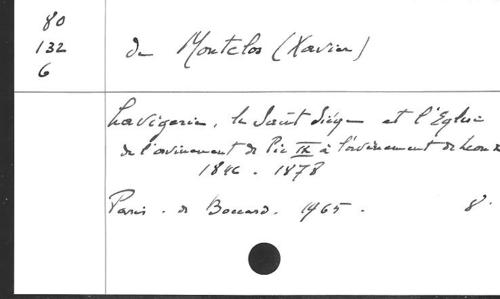 80
132
6
de Montclos (Xavier)
Lavigerie, le Saint Siège et l'Eglise
de l'avènement de Pie IX à l'avènement de Léon
1846 - 1878
Paris. de Boccard. 1965. 8°